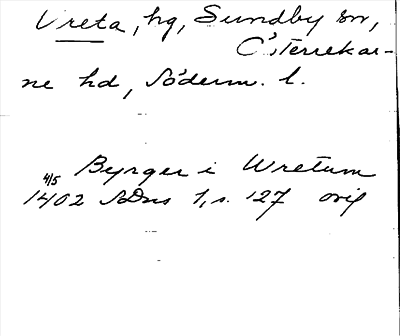 Vreta, hg, Sundby sn,
Österrekar-
ne hd, Söderm. l.
Byrger i Wretum
4/5
1402 SDns 1, s. 127 orig